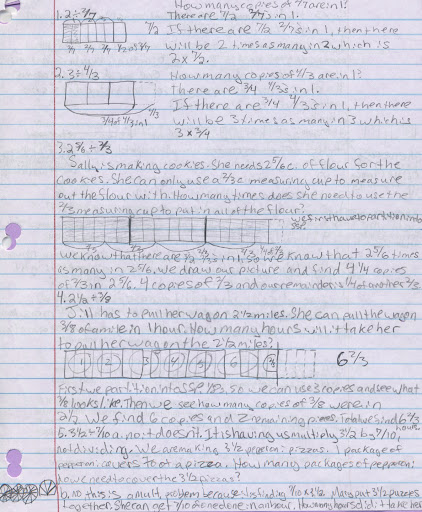 How many copies of 2/7 are in 1?
1. 2 ÷ 2/7
There are 7/2 2/7's in 1.
If there are 7/2 2/7's in 1, then there
will be 2 times as many in 2 which is
2 x 7/2.
2. 3 ÷ 4/3
How many copies of 4/3 are in 1?
There are 3/4 4/3's in 1.
If there are 3/4 4/3's in 1, then there
will be 3 times as many in 3 which is
3 x 3/4
3/4 of 4/3 in 1
3. 2 5/6 ÷ 2/3
Sally is making cookies. She needs 2 5/6 c. of flour for the
cookies. She can only use a 2/3 c measuring cup to measure
out the flour with. How many times does she need to use the
2/3 measuring cup to put in all of the flour?
we first have to partition into
we know that there are 1/2 in 1, so we know that 2 5/6 times
as many in 2 5/6. we draw our picture and find 4 1/4 copies
of 2/3 in 2 5/6. 4 copies of 2/3 and our remainder is 1/4 of another 2/3.
4. 2 1/2 ÷ 3/8
Jill has to pull her wagon 2 1/2 miles. She can pull the wagon
3/8 of a mile in 1 hour. How many hours will it take her
to pull her wagon the 2 1/2 miles?
1 2 3 4 5 6 2/3
6 2/3
First we partition into so we can use 3 copies and see what
3/8 looks like. Then we see how many copies of 3/8 were in
2 1/2. We find 6 copies and 2 remaining pieces. Total we find 6 2/3
hours.
5. 3 1/2 ÷ 7/10 a. no it doesn't. It is having us multiply 3 1/2 by 7/10,
not dividing. We are making 3 1/2 peperoni pizzas. 1 package of
peperoni covers 7/10 of a pizza. How many packages of peperoni
do we need to cover the 3 1/2 pizzas?
b. no this is a mult. problem because it is finding 7/10 x 3 1/2. Mary put 3 1/2 puzzles
together. She can get 7/10 of one done in an hour. How many hours did it take her